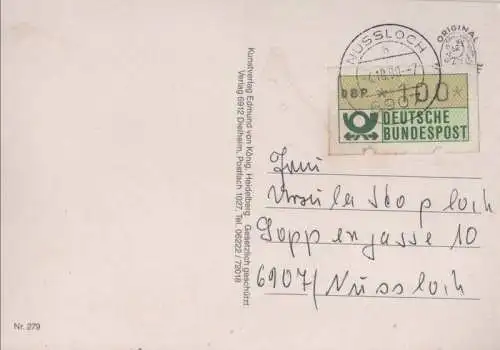 Kunstverlag Edmund von König, Heidelberg Gesetzlich geschützt
Verlag 6912 Dielheim, Postfach 1027, Tel. 06222 / 72018
Nr. 279
NUSSLOCH
h
ORIGINAL
DBP * 100 *
6907
DEUTSCHE
BUNDESPOST
Frau
Ursula Stoploch
Soppengasse 10
6907/Nussloch